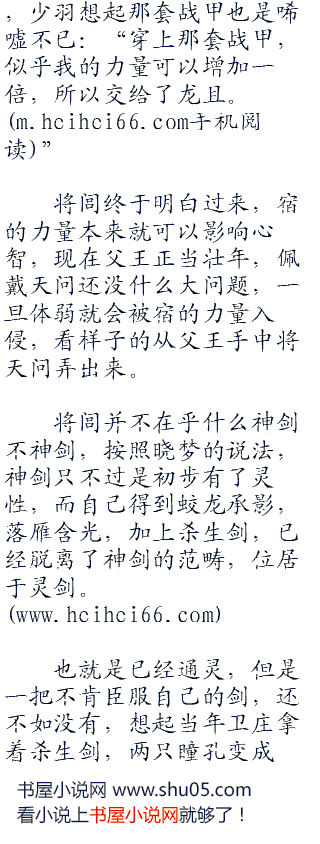 ，少羽想起那套战甲也是唏
嘘不已：“穿上那套战甲，
似乎我的力量可以增加一
倍，所以交给了龙且。
(m.hcihci66.com手机阅
读)”
将闾终于明白过来，宿
的力量本来就可以影响心
智，现在父王正当壮年，佩
戴天问还没什么大问题，一
旦体弱就会被宿的力量入
侵，看样子的从父王手中将
天问弄出来。
将闾并不在乎什么神剑
不神剑，按照晓梦的说法，
神剑只不过是初步有了灵
性，而自己得到蛟龙承影，
落雁含光，加上杀生剑，已
经脱离了神剑的范畴，位居
于灵剑。
(www.hcihci66.com)
也就是已经通灵，但是
一把不肯臣服自己的剑，还
不如没有，想起当年卫庄拿
着杀生剑，两只瞳孔变成
书屋小说网 www.shu05.com
看小说上书屋小说网就够了！